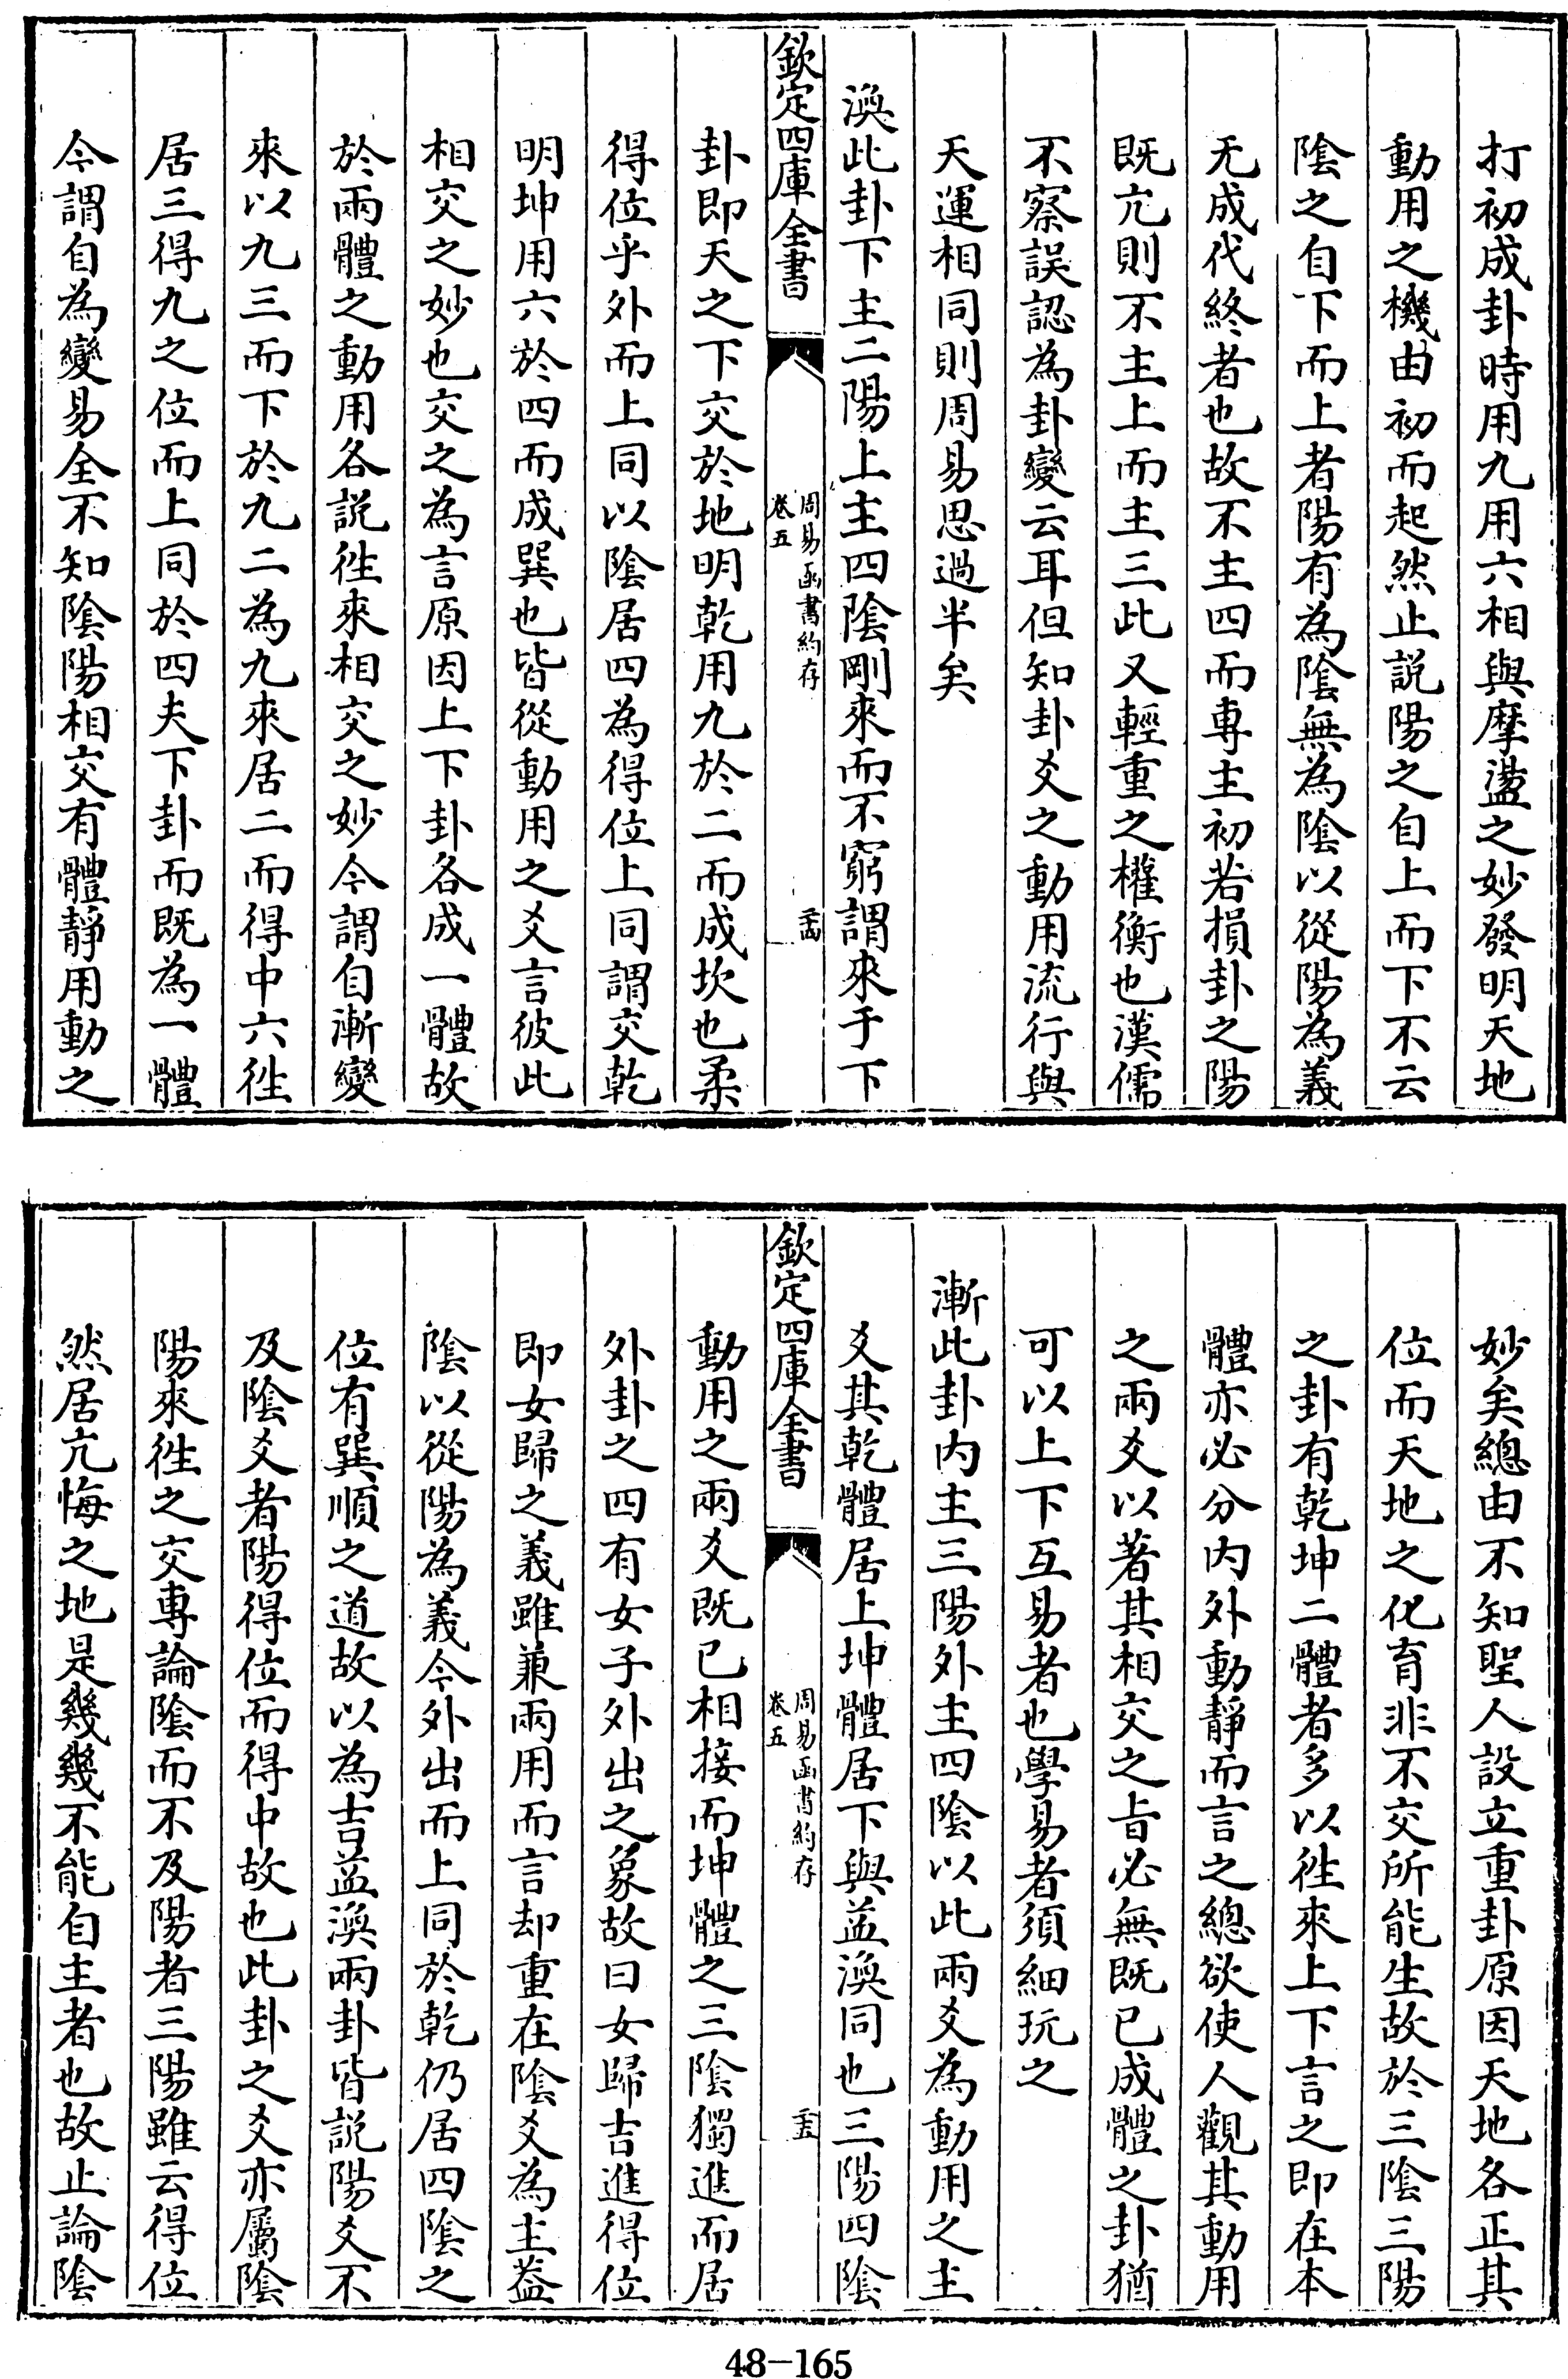 打初成卦時用九用六相與摩盪之妙發明天地
動用之機由初而起然止説陽之自上而下不云
陰之自下而上者陽有為陰無為陰以從陽為義
无成代終者也故不主四而專主初若損卦之陽
既亢則不主上而主三此又輕重之權衡也漢儒
不察誤認為卦變云耳但知卦爻之動用流行與
天運相同則周易思過半矣
渙此卦下主二陽上主四陰剛來而不窮謂來于下
欽定四庫全書
周易函書約存
卷五
卦即天之下交於地明乾用九於二而成坎也柔
得位乎外而上同以陰居四為得位上同謂交乾
明坤用六於四而成巽也皆從動用之爻言彼此
相交之妙也交之為言原因上下卦各成一體故
於兩體之動用各説徃來相交之妙今謂自漸變
來以九三而下於九二為九來居二而得中六徃
居三得九之位而上同於四夫下卦而既為一體
今謂自為變易全不知陰陽相交有體靜用動之
妙矣總由不知聖人設立重卦原因天地各正其
位而天地之化育非不交所能生故於三陰三陽
之卦有乾坤二體者多以徃來上下言之即在本
體亦必分内外動靜而言之總欲使人觀其動用
之兩爻以著其相交之旨必無既已成體之卦猶
可以上下互易者也學易者須細玩之
漸此卦内主三陽外主四陰以此兩爻為動用之主
爻其乾體居上坤體居下與益渙同也三陽四陰
欽定四庫全書
周易函書約存
卷五
動用之兩爻既已相接而坤體之三陰獨進而居
外卦之四有女子外出之象故曰女歸吉進得位
即女歸之義雖兼兩用而言却重在陰爻為主葢
陰以從陽為義今外出而上同於乾仍居四陰之
位有巽順之道故以為吉益渙兩卦皆説陽爻不
及陰爻者陽得位而得中故也此卦之爻亦屬陰
陽來徃之交專論陰而不及陽者三陽雖云得位
然居亢悔之地是幾幾不能自主者也故止論陰
48-165